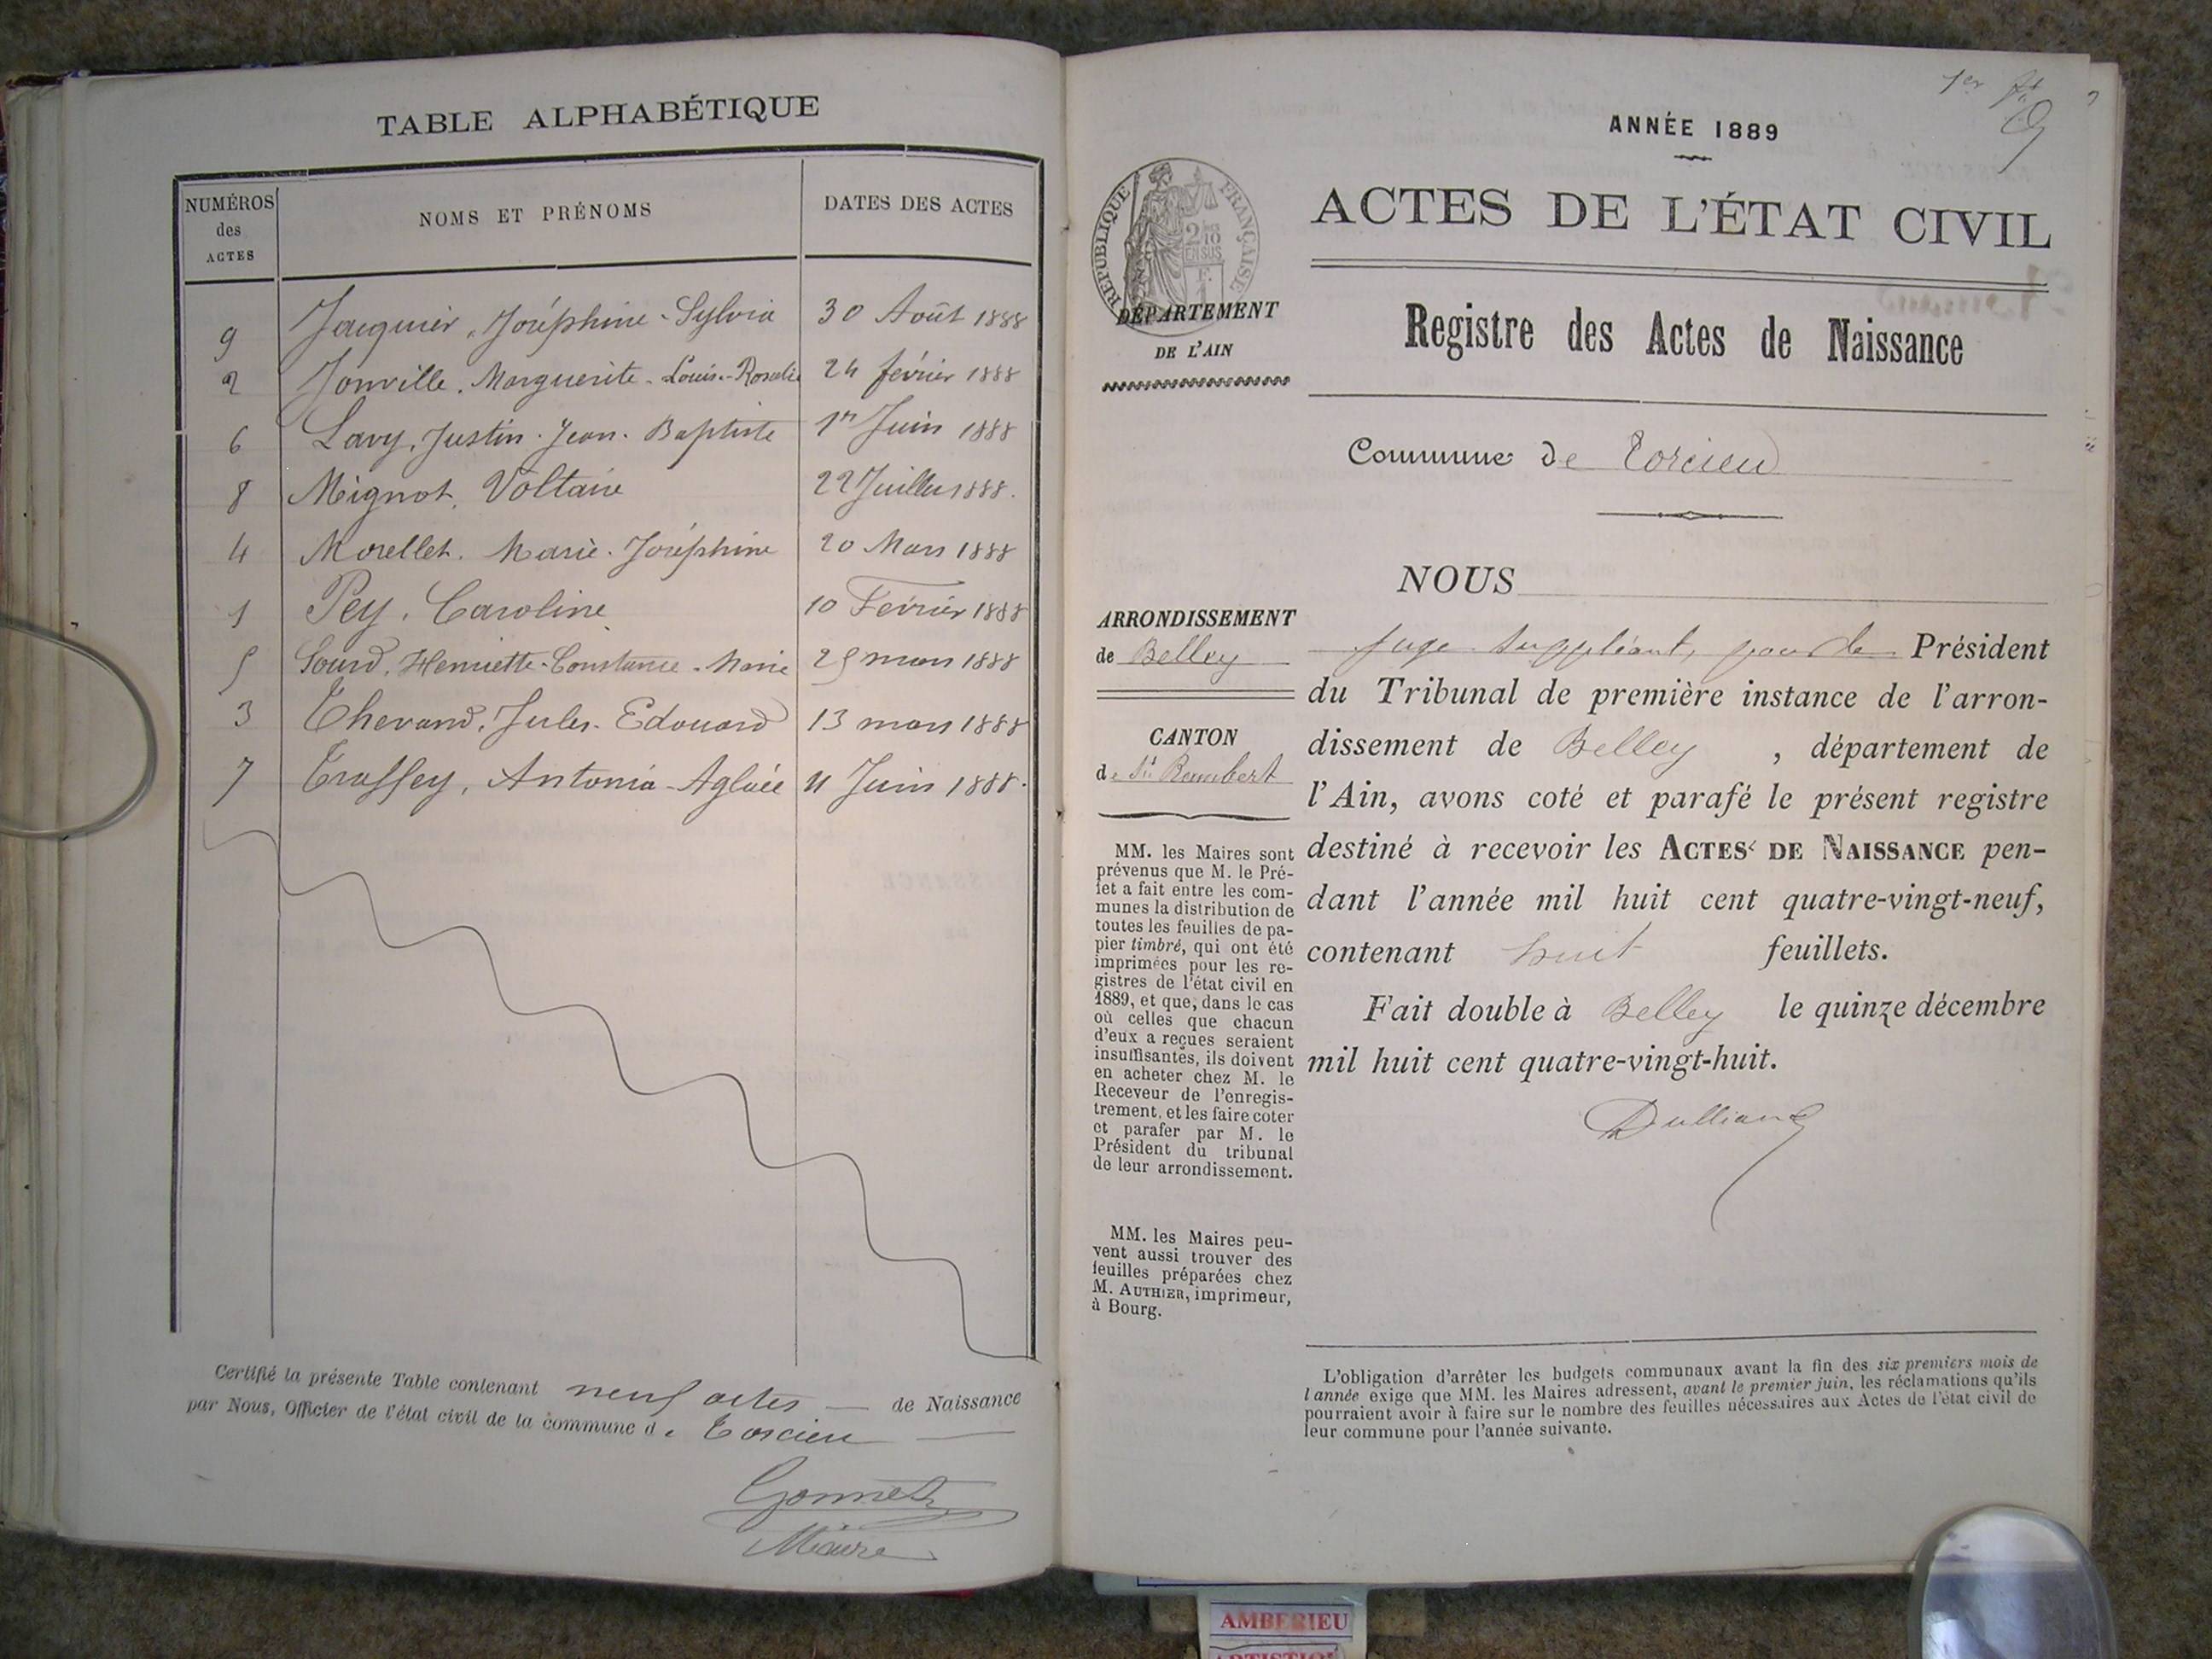 TABLE ALPHABÉTIQUE
NUMÉROS des ACTES
NOMS ET PRÉNOMS
DATES DES ACTES
9 Jacquier, Joséphine-Sylvia 30 Août 1888
2 Jonville. Marguerite-Louis.-Rosalie 24 février 1888
6 Lavy, Justin. Jean. Baptiste 1er Juin 1888
8 Mignot, Voltaire 22 Juillet 1888.
4 Morellet. Marie. Joséphine 20 Mars 1888
1 Pey, Caroline 10 Février 1888
5 Sourd, Henriette-Constance-Marie 25 mars 1888
3 Thevand, Jules-Edouard 13 mars 1888
7 Traffey, Antonia-Aglaée 11 Juin 1888.
Certifié la présente Table contenant neuf actes — de Naissance
par Nous, Officier de l'état civil de la commune de Torcieu
Gonnet
Maire
1er ft.
ANNÉE 1889
RÉPUBLIQUE FRANÇAISE
2/10 EN SUS
ACTES DE L'ÉTAT CIVIL
DÉPARTEMENT
DE L'AIN
Registre des Actes de Naissance
Commune de Torcieu
NOUS
ARRONDISSEMENT
de Belley
juge suppléant, pour le Président
du Tribunal de première instance de l'arron-
dissement de Belley , département de
l'Ain, avons coté et parafé le présent registre
destiné à recevoir les ACTES DE NAISSANCE pen-
dant l'année mil huit cent quatre-vingt-neuf,
contenant huit feuillets.
Fait double à Belley le quinze décembre
mil huit cent quatre-vingt-huit.
Dulliand
CANTON
de St Rambert
MM. les Maires sont
prévenus que M. le Pré-
fet a fait entre les com-
munes la distribution de
toutes les feuilles de pa-
pier timbré, qui ont été
imprimées pour les re-
gistres de l'état civil en
1889, et que, dans le cas
où celles que chacun
d'eux a reçues seraient
insuffisantes, ils doivent
en acheter chez M. le
Receveur de l'enregis-
trement, et les faire coter
et parafer par M. le
Président du tribunal
de leur arrondissement.
MM. les Maires peu-
vent aussi trouver des
feuilles préparées chez
M. AUTHIER, imprimeur,
à Bourg.
L'obligation d'arrêter les budgets communaux avant la fin des six premiers mois de
l'année exige que MM. les Maires adressent, avant le premier juin, les réclamations qu'ils
pourraient avoir à faire sur le nombre des feuilles nécessaires aux Actes de l'état civil de
leur commune pour l'année suivante.
AMBERIEU